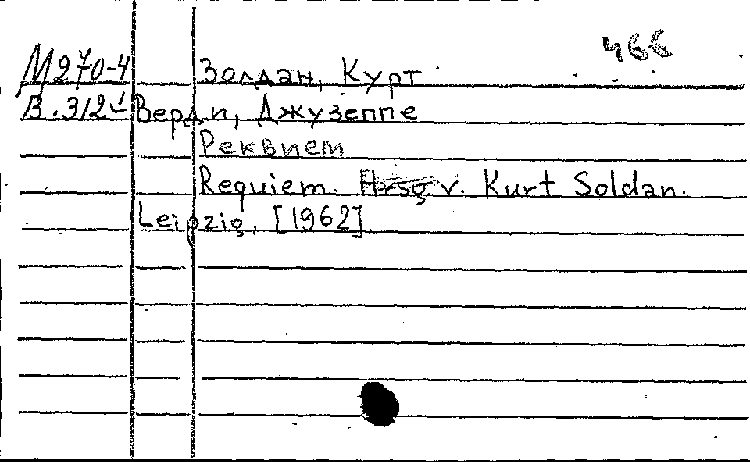 466
М270-4 Золдан, Курт
В.312 Верди, Джузеппе
Реквием
Requiem. Hrsg v. Kurt Soldan.
Leipzig, [1962]